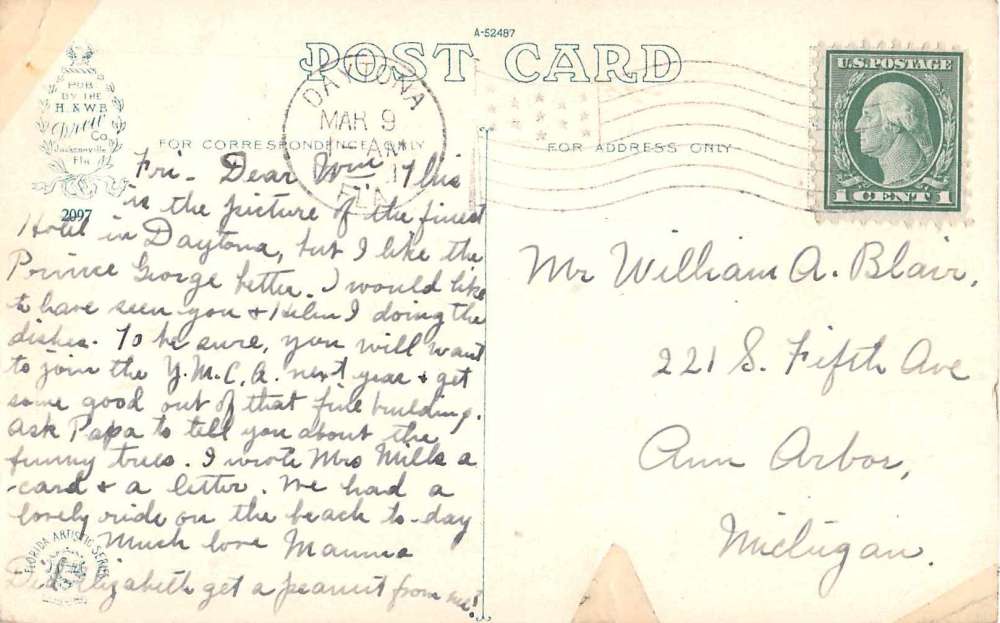 A-52487
POST CARD
PUB
BY THE
H. & W.B.
Drew
Co.
Jacksonville
Fla
2097
DAYTONA
MAR 9
FLA
U.S. POSTAGE
1 CENT 1
FOR CORRESPONDENCE ONLY
FOR ADDRESS ONLY
Fri - Dear Wm This
is the picture of the finest
Hotel in Daytona, but I like the
Prince George better. I would like
to have seen you & Helen I doing the
dishes. To be sure, you will want
to join the Y.M.C.A. next year & get
some good out of that fine building.
Ask Papa to tell you about the
funny trees. I wrote Mrs Mills a
card & a letter. We had a
lovely ride on the beach to-day
Much love Mamma
Did Elizabeth get a peanut from me?
FLORIDA ARTISTIC SERIES
Mr William A. Blair,
221 S. Fifth Ave
Ann Arbor,
Michigan.